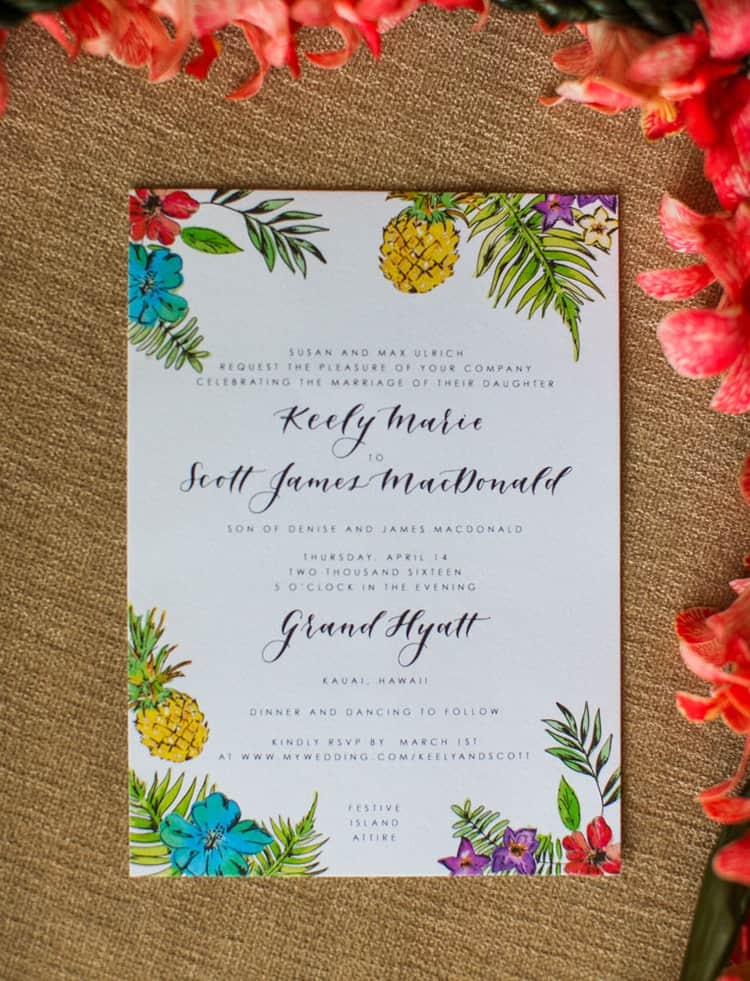 SUSAN AND MAX ULRICH
REQUEST THE PLEASURE OF YOUR COMPANY
CELEBRATING THE MARRIAGE OF THEIR DAUGHTER
Keely Marie
TO
Scott James MacDonald
SON OF DENISE AND JAMES MACDONALD
THURSDAY, APRIL 14
TWO THOUSAND SIXTEEN
5 O'CLOCK IN THE EVENING
Grand Hyatt
KAUAI, HAWAII
DINNER AND DANCING TO FOLLOW
KINDLY RSVP BY MARCH 1ST
AT WWW.MYWEDDING.COM/KEELYANDSCOTT
FESTIVE
ISLAND
ATTIRE